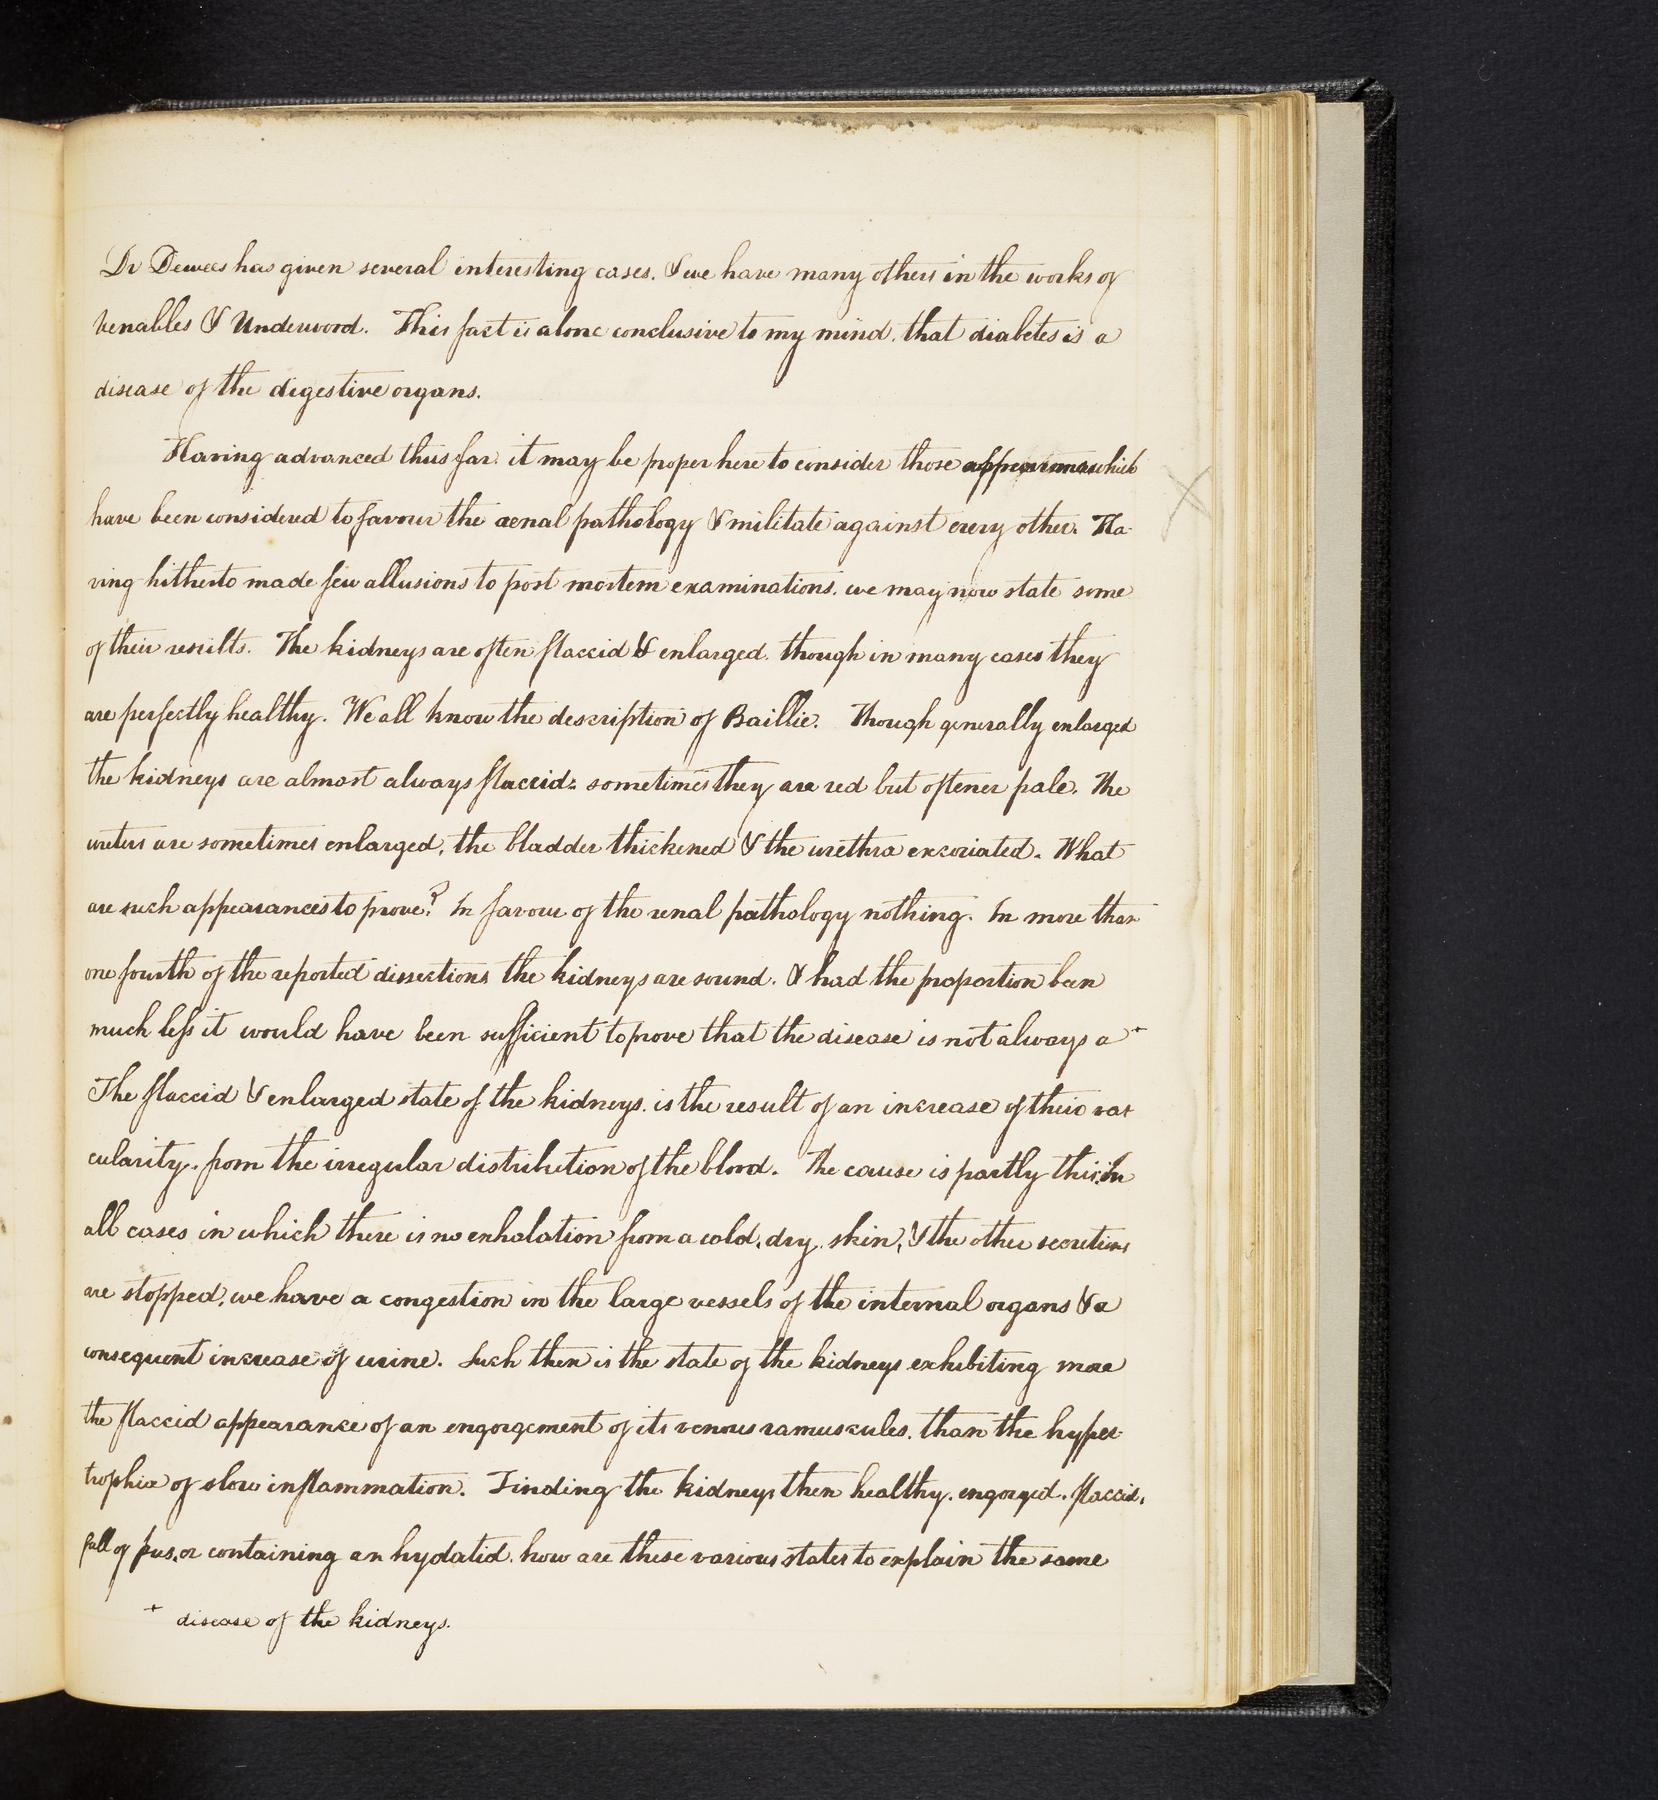 Dr Dewees has given several interesting cases. & we have many others in the works of
Venables & Underwood. This fact is alone conclusive to my mind, that diabetes is a
disease of the digestive organs.
Having advanced thus far, it may be proper here to consider those appearances which
have been considered to favour the renal pathology & militate against every other. Ha-
ving hitherto made few allusions to post mortem examinations, we may now state some
of their results. The kidneys are often flaccid & enlarged, though in many cases they
are perfectly healthy. We all know the description of Baillie. Though generally enlarged
the kidneys are almost always flaccid: sometimes they are red but oftener pale. The
ureters are sometimes enlarged, the bladder thickened & the urethra excoriated. What
are such appearances to prove? In favour of the renal pathology nothing. In more than
one fourth of the reported dissections the kidneys are sound. & had the proportion been
much less it would have been sufficient to prove that the disease is not always a +
The flaccid & enlarged state of the kidneys, is the result of an increase of their vas
cularity, from the irregular distribution of the blood. The cause is partly this: in
all cases in which there is no exhalation from a cold, dry, skin, & the other secretions
are stopped, we have a congestion in the large vessels of the internal organs & a
consequent increase of urine. Such then is the state of the kidneys exhibiting more
the flaccid appearance of an engorgement of its venous ramuscules, than the hyper-
trophia of slow inflammation. Finding the kidneys then healthy, engorged, flaccid,
full of pus, or containing an hydatid, how are these various states to explain the same
+ disease of the kidneys.